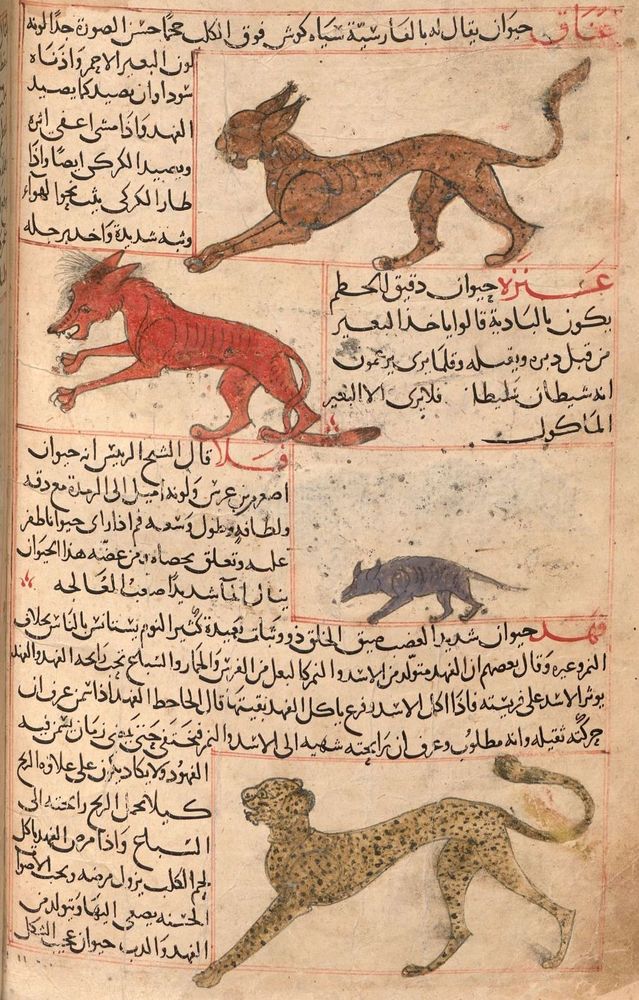 عناق حيوان يقال له بالفارسية سياه كوش فوق الكلب حجما حسن الصورة جدا لونه
لون البعير الاحمر واذناه
سوداوان يصيد كما يصيد
الفهد واذا مشى اعفى اثره
ويصيد الكركي ايضا واذا
طار الكركي يثب نحو الهواء
وثبة شديدة واخذ برجله
عنزة حيوان دقيق الخطم
يكون بالبادية قالوا ياخذ البعير
من قبل دبره ويقتله وقلما يرى يزعمون
انه شيطان فلا يرى الا البعير
الماكول
فلا قال الشيخ الرييس انه حيوان
اصغر من عرس ولونه اميل الى الرمدة مع دقة
ولطافة وطول وسعة فم اذا راى حيوانا طفر
عليه وتعلق بخصاه ومن عضه هذا الحيوان
ينال الما شديدا صعب المعالجة
فهد حيوان شديد الغضب ضيق الخلق ذو وثبات بعيدة كثير النوم يستانس بالناس بخلاف
النمر وغيره وقال بعضهم ان الفهد متولد من الاسد والنمر كالبغل من الفرس والحمار والسباع تحب رايحة الفهد والفهد
يوثر الاسد على فريسته فاذا اكل الاسد وفرغ ياكل الفهد بقيتها قال الجاحظ الفهد اذا سمن عرف ان
حركته ثقيلة وانه مطلوب وعرف ان رايحته شهية الى الاسد والنمر فيختفى حتى زمان سمن فيه
الفهود ولا يكاد يكون على علاوة الريح
كيلا تحمل الريح رايحته الى
السباع واذا مرض الفهد ياكل
لحم الكلب يزول مرضه ويحب الاصوات
الحسنة يصغى اليها ويتولد من
الفهد والدب حيوان عجيب الشكل